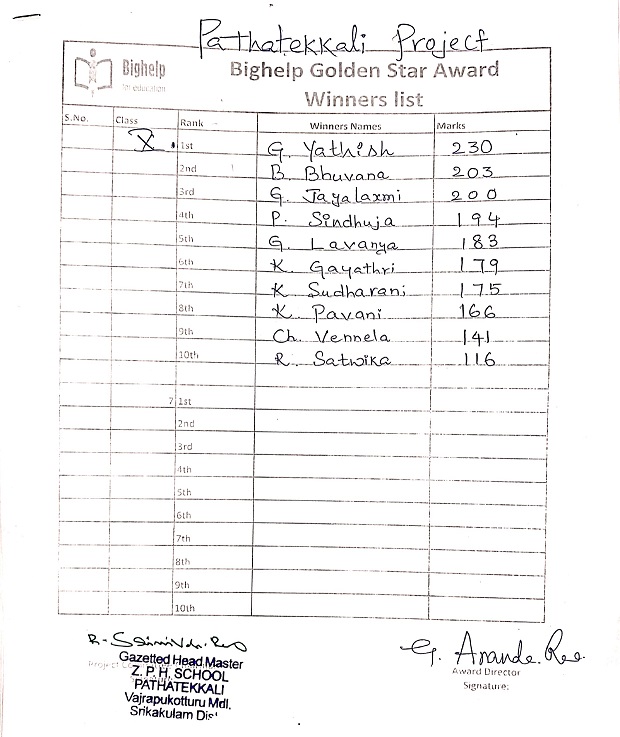 Pathatekkali Project
Bighelp
for education
Bighelp Golden Star Award
Winners list
S.No. Class Rank Winners Names Marks
X 1st G. Yathish 230
2nd B. Bhuvana 203
3rd G. Jayalaxmi 200
4th P. Sindhuja 194
5th G. Lavanya 183
6th K. Gayathri 179
7th K Sudharani 175
8th K Pavani 166
9th Ch. Vennela 141
10th R. Satwika 116
7 1st
2nd
3rd
4th
5th
6th
7th
8th
9th
10th
Gazetted Head Master
Z. P. H. SCHOOL
PATHATEKKALI
Vajrapukotturu Mdl.
Srikakulam Dist
G. Ananda. Rao
Award Director
Signature: